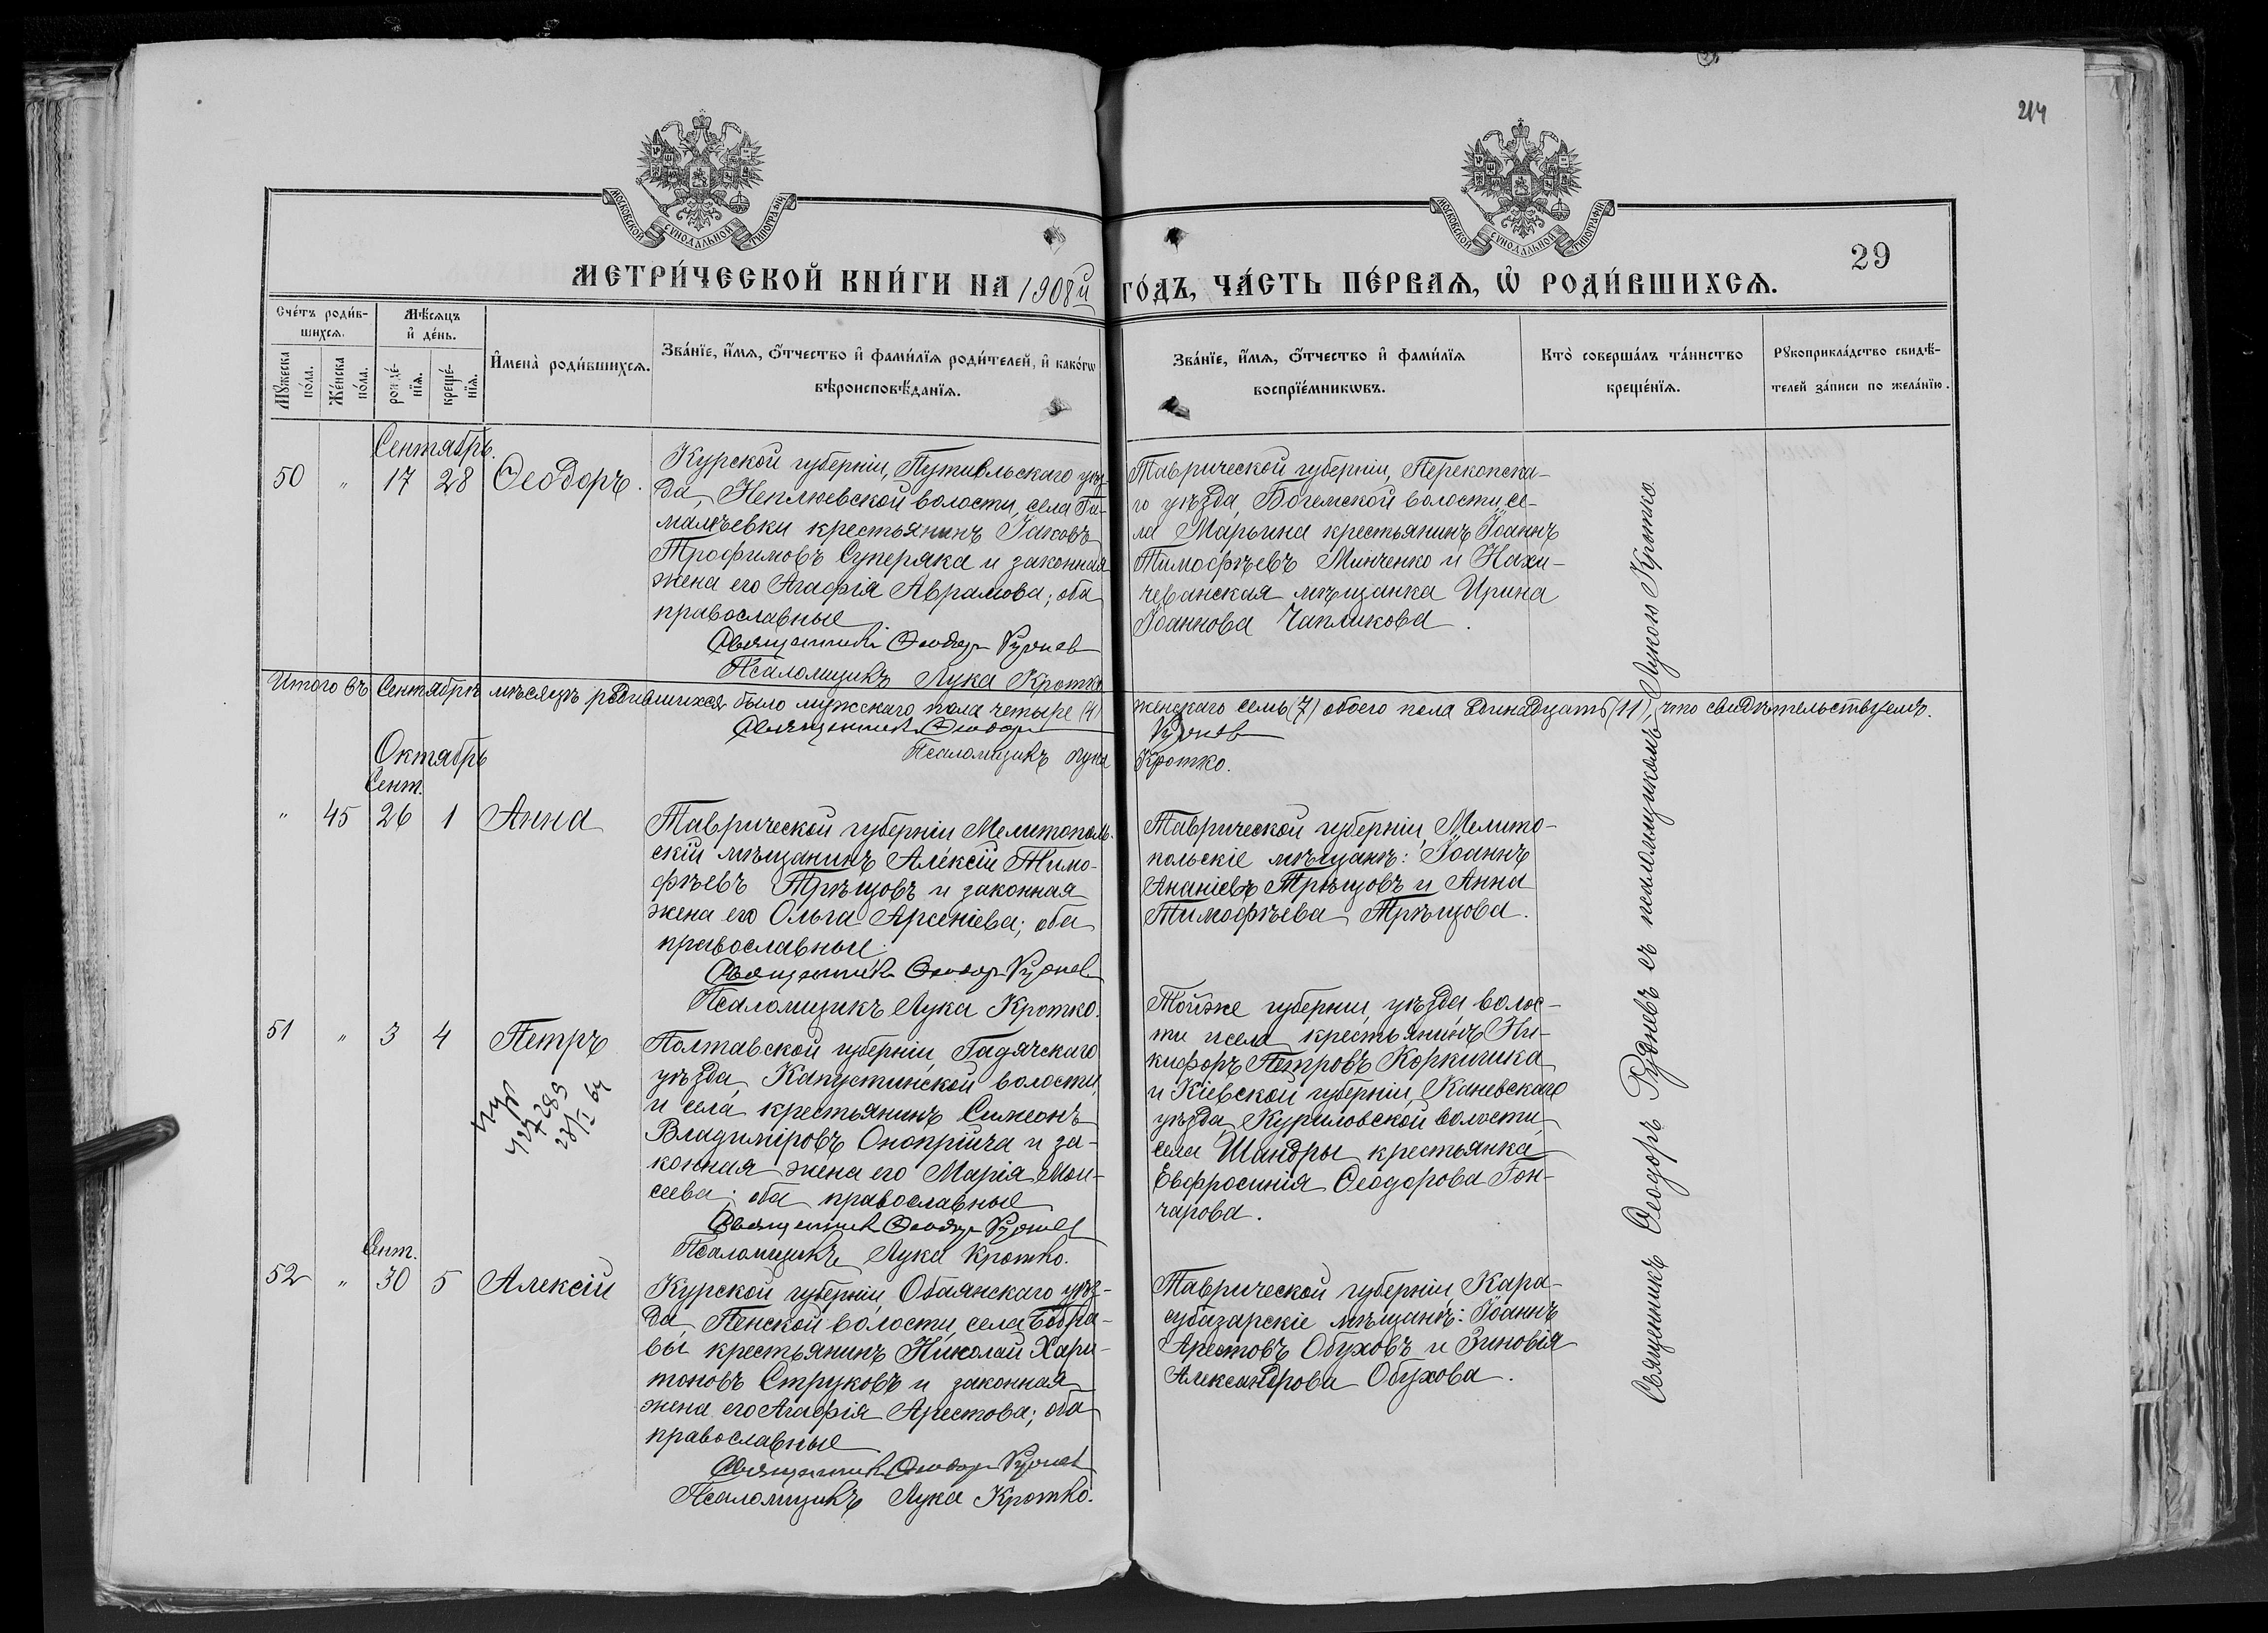 214
МОСКОВСКОЙ СѴНОДАЛЬНОЙ ТИПОГРАФІИ
МОСКОВСКОЙ СѴНОДАЛЬНОЙ ТИПОГРАФІИ
29
МЕТРИ́ЧЕСКОЙ КНИ́ГИ НА 1908й ГО́ДЪ, ЧА́СТЬ ПЕ́РВАѦ, Ѡ҆ РОДИ́ВШИХСѦ.
Сче́тъ роди́в-
шихсѧ.
Мꙋ́жеска по́ла.
Же́нска по́ла.
Мѣ́сѧцъ
и҆ де́нь.
рожде́-
нїѧ.
креще́-
нїѧ.
И҆мена̀ роди́вшихсѧ.
Зва́нїе, и҆́мѧ, ѻ҆́тчество и҆ фами́лїѧ роди́телей, и҆ како́гѡ
вѣроисповѣ́данїѧ.
Зва́нїе, и҆́мѧ, ѻ҆́тчество и҆ фами́лїѧ
воспрїе́мникѡвъ.
Кто̀ соверша́лъ та́инство
креще́нїѧ.
Рꙋкоприкла́дство свидѣ́-
телей за́писи по жела́нїю.
Сентябрь.
50 " 17 28 Ѳеодоръ.
Курской губерніи, Путивльскаго уѣз-
да, Неплюевской волости, села Га-
малѣевки крестьянинъ Іаковъ
Трофимовъ Суперяка и законная
жена его Агафія Аврамова; оба
православные
Священникъ Ѳеодоръ Руднев
Псаломщикъ Лука Кротко
Таврической губерніи, Перекопска-
го уѣзда, Богемской волости, се-
ла Марьина крестьянинъ Іоаннъ
Тимофѣевъ Минченко и Нахи-
чеванская мѣщанка Ирина
Іоаннова Чапликова.
Итого въ Сентябрѣ мѣсяцѣ родившихся было мужскаго пола четыре (4) женскаго семь (7) обоего пола одинадцать (11), что свидѣтельствуемъ.
Священникъ Ѳеодоръ Руднев
Псаломщикъ Лука Кротко.
Октябрь
Сент.
" 45 26 1 Анна
Таврической губерніи Мелитополь-
скій мѣщанинъ Алексій Тимо-
фѣевъ Трѣщовъ и законная
жена его Ольга Арсеніева; оба
православные.
Священникъ Ѳеодоръ Руднев
Псаломщикъ Лука Кротко.
Таврической губерніи, Мелито-
польскіе мѣщане: Іоаннъ
Ананіевъ Трѣщовъ и Анна
Тимофѣева Трѣщова.
51 " 3 4 Петръ
7289
23/I 64
Полтавской губерніи, Гадячскаго
уѣзда, Капустинской волости
и села крестьянинъ Симеонъ
Владиміровъ Оноприйча и за-
конная жена его Марія Мои-
сеева; оба православные
Священник Ѳеодоръ Руднев
Псаломщикъ Лука Кротко.
Тойже губерніи, уѣзда, волос-
ти и села крестьянинъ Ни-
кифоръ Петровъ Коркишка
и Кіевской губерніи, Каневскаго
уѣзда, Куриловской волости,
села Шандры крестьянка
Евфросинія Ѳеодорова Гон-
чарова.
Сент.
52 " 30 5 Алексій
Курской губерніи, Обоянскаго уѣз-
да, Пенской волости, села Бобра-
вы крестьянинъ Николай Хари-
тоновъ Струковъ и законная
жена его Агафія Арестова; оба
православные
Священникъ Ѳеодоръ Руднев
Псаломщикъ Лука Кротко.
Таврической губерніи, Кара-
субазарскіе мѣщане: Іоаннъ
Арестовъ Обуховъ и Зиновія
Александрова Обухова.
Священникъ Ѳеодоръ Рудневъ съ псаломщикомъ Лукою Кротко.